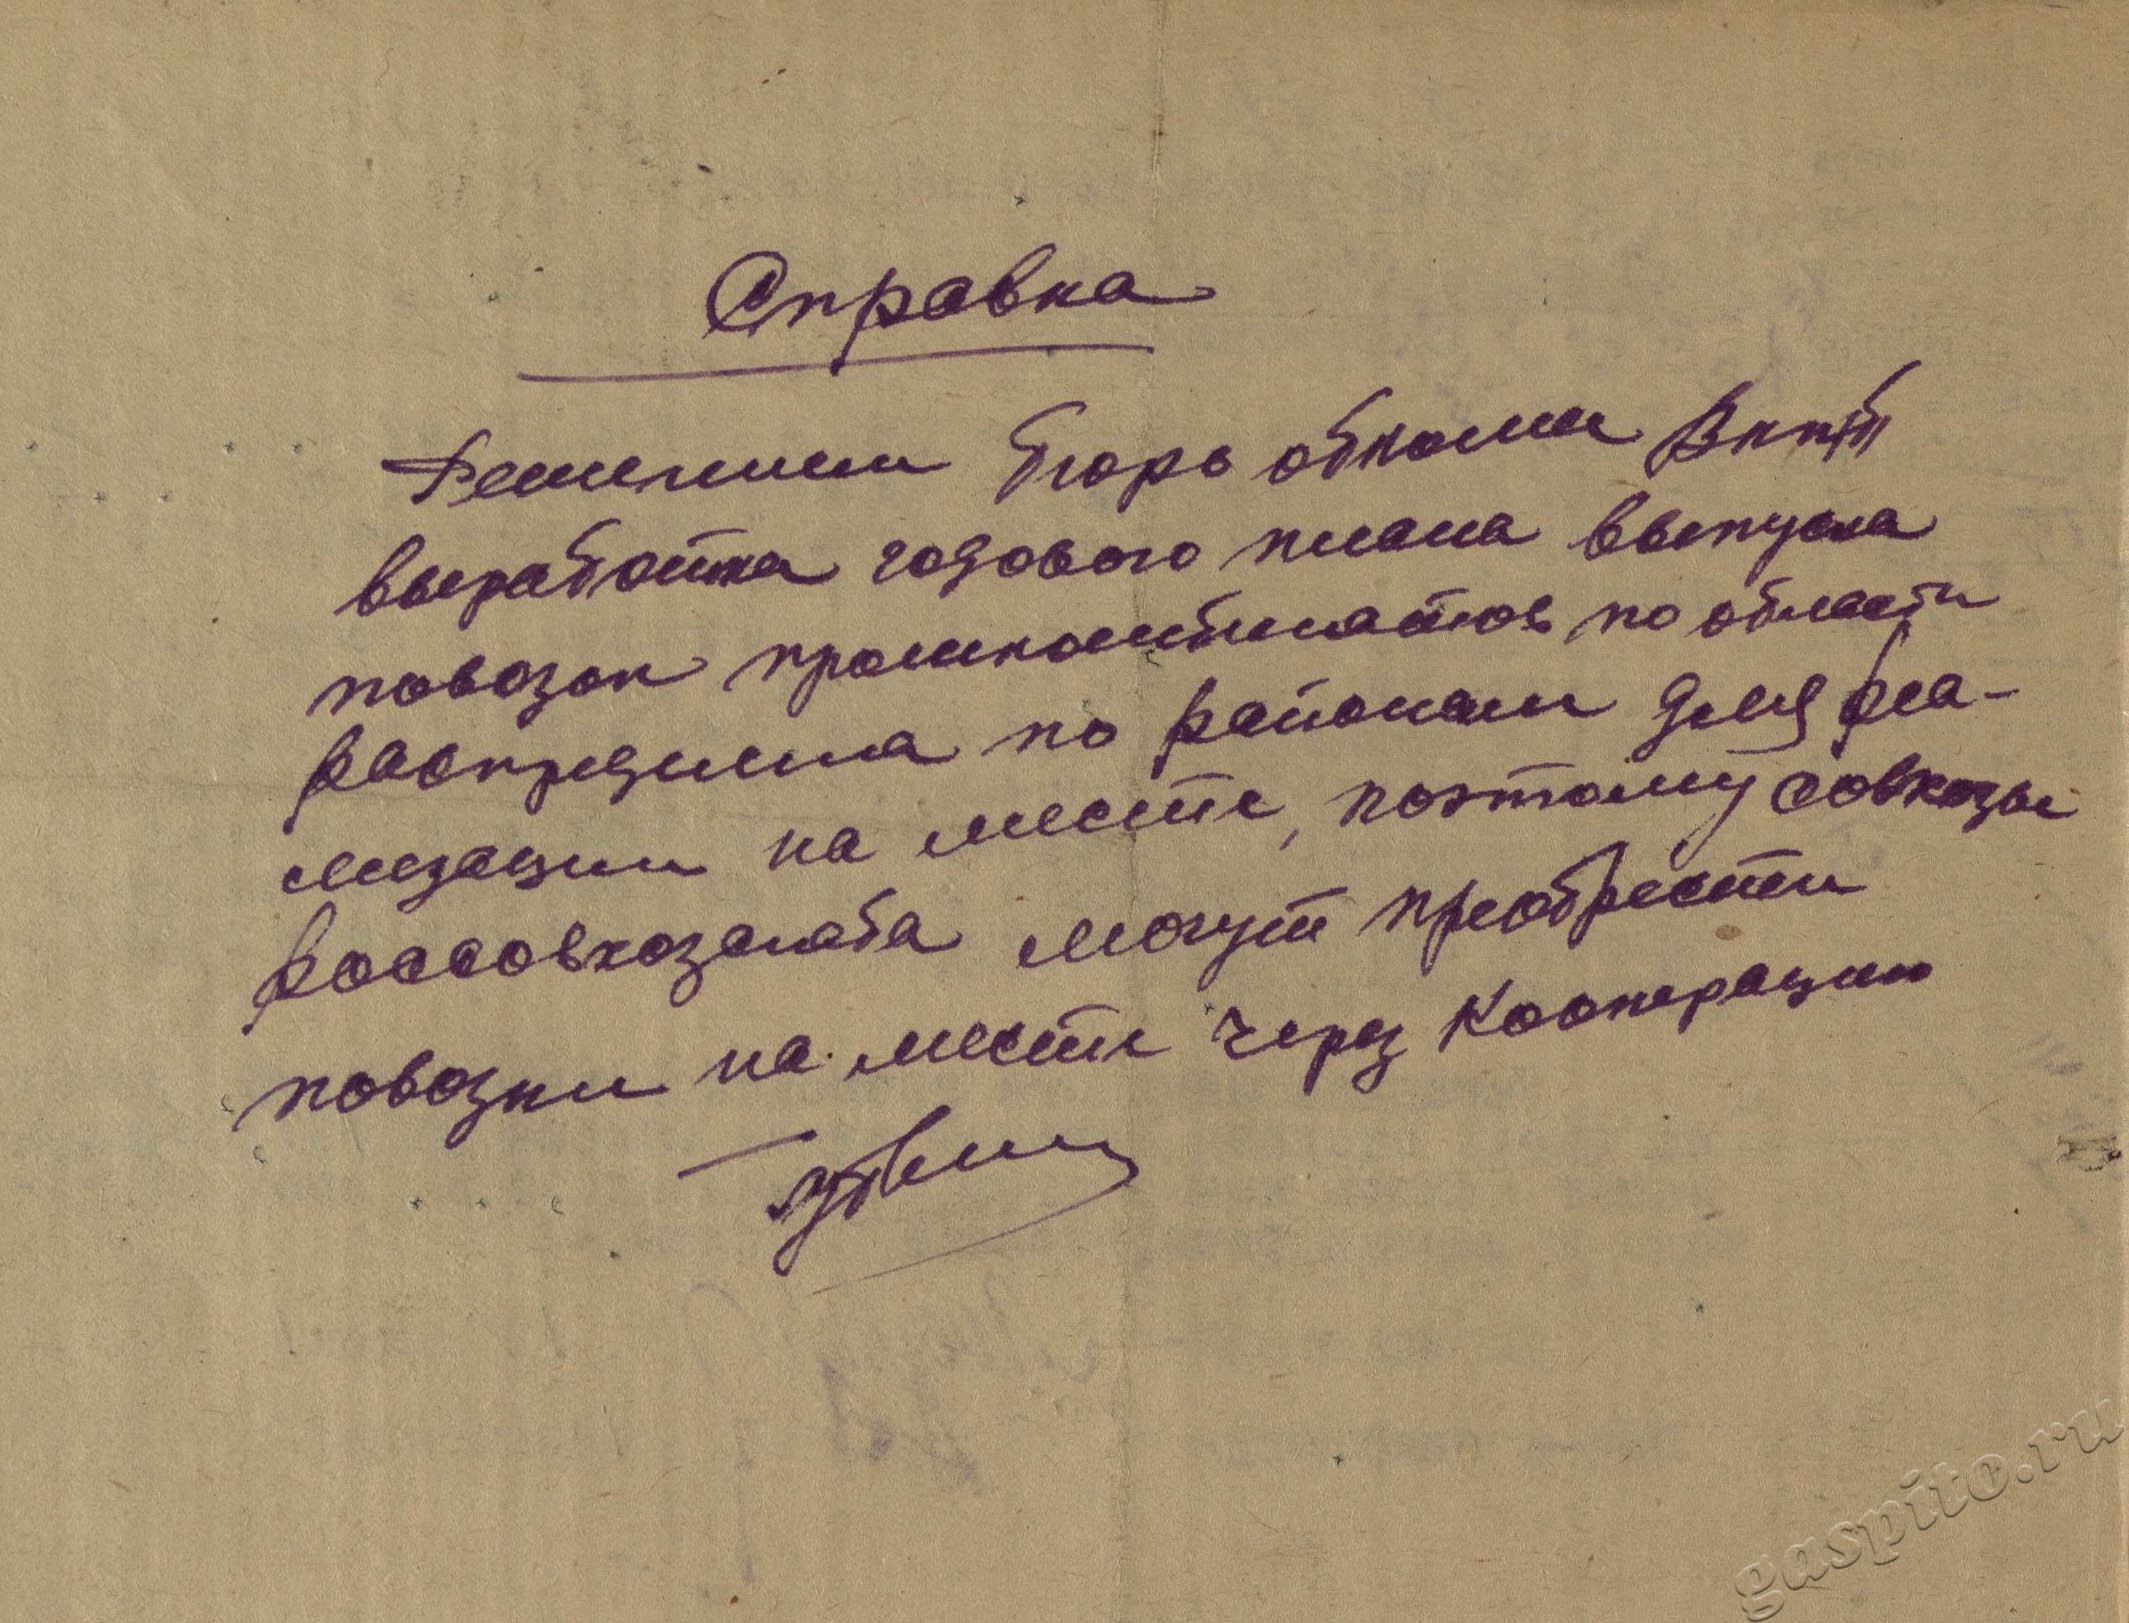 Справка
Решением бюро обкома ВКП/б/
выработка годового плана выпуска
повозок промкомбинатов по области
распределена по районам для реа-
лизации на месте, поэтому совхозы
Россовхозснаба могут преобрести
повозки на месте через кооперацию
gaspito.ru